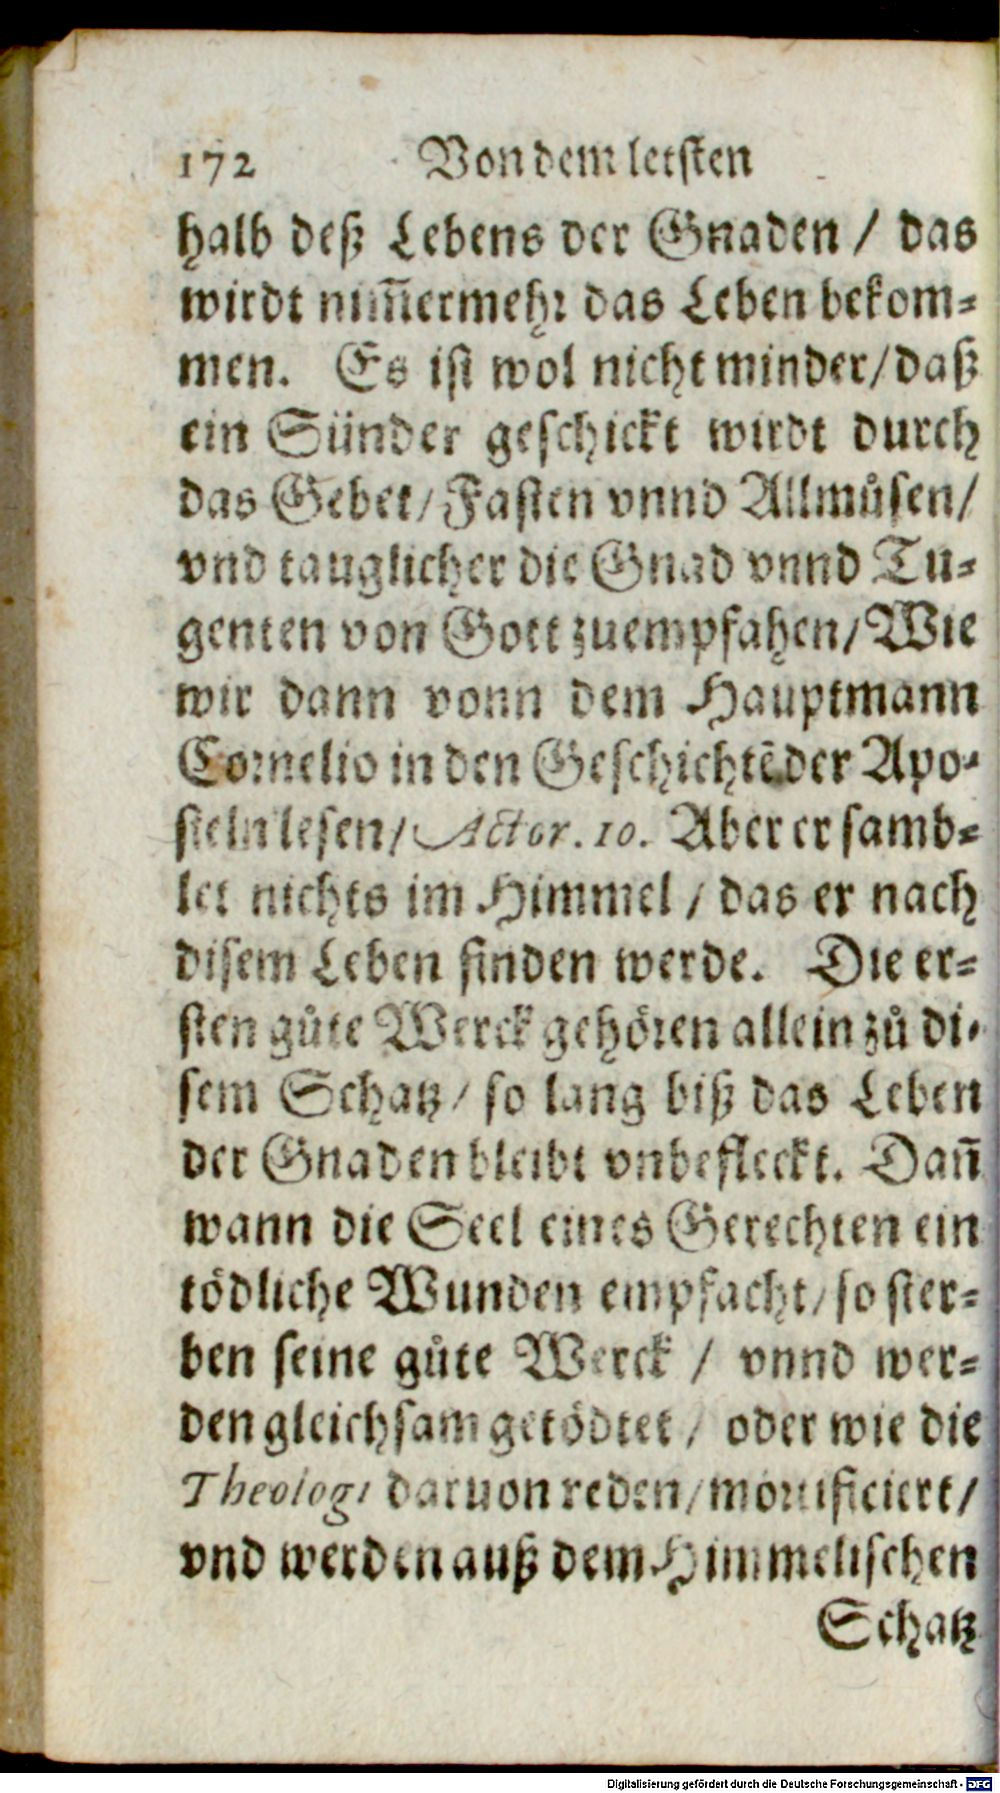 172 Von dem letsten
halb deß Lebens der Gnaden / das
wirdt nim̃ermehr das Leben bekom⸗
men. Es ist wol nicht minder / daß
ein Sünder geschickt wirdt durch
das Gebet / Fasten vnnd Allmůsen /
vnd tauglicher die Gnad vnnd Tu⸗
genten von Gott zuempfahen / Wie
wir dann vonn dem Hauptmann
Cornelio in den Geschichtẽ der Apo⸗
steln lesen / Actor. 10. Aber er samb⸗
let nichts im Himmel / das er nach
disem Leben finden werde. Die er⸗
sten gůte Werck gehören allein zů di⸗
sem Schatz / so lang biß das Leben
der Gnaden bleibt vnbefleckt. Dañ
wann die Seel eines Gerechten ein
tödliche Wunden empfacht / so ster⸗
ben seine gůte Werck / vnnd wer⸗
den gleichsam getödtet / oder wie die
Theologi daruon reden / mortificiert /
vnd werden auß dem Himmelischen
Schatz
Digitalisierung gefördert durch die Deutsche Forschungsgemeinschaft - DFG